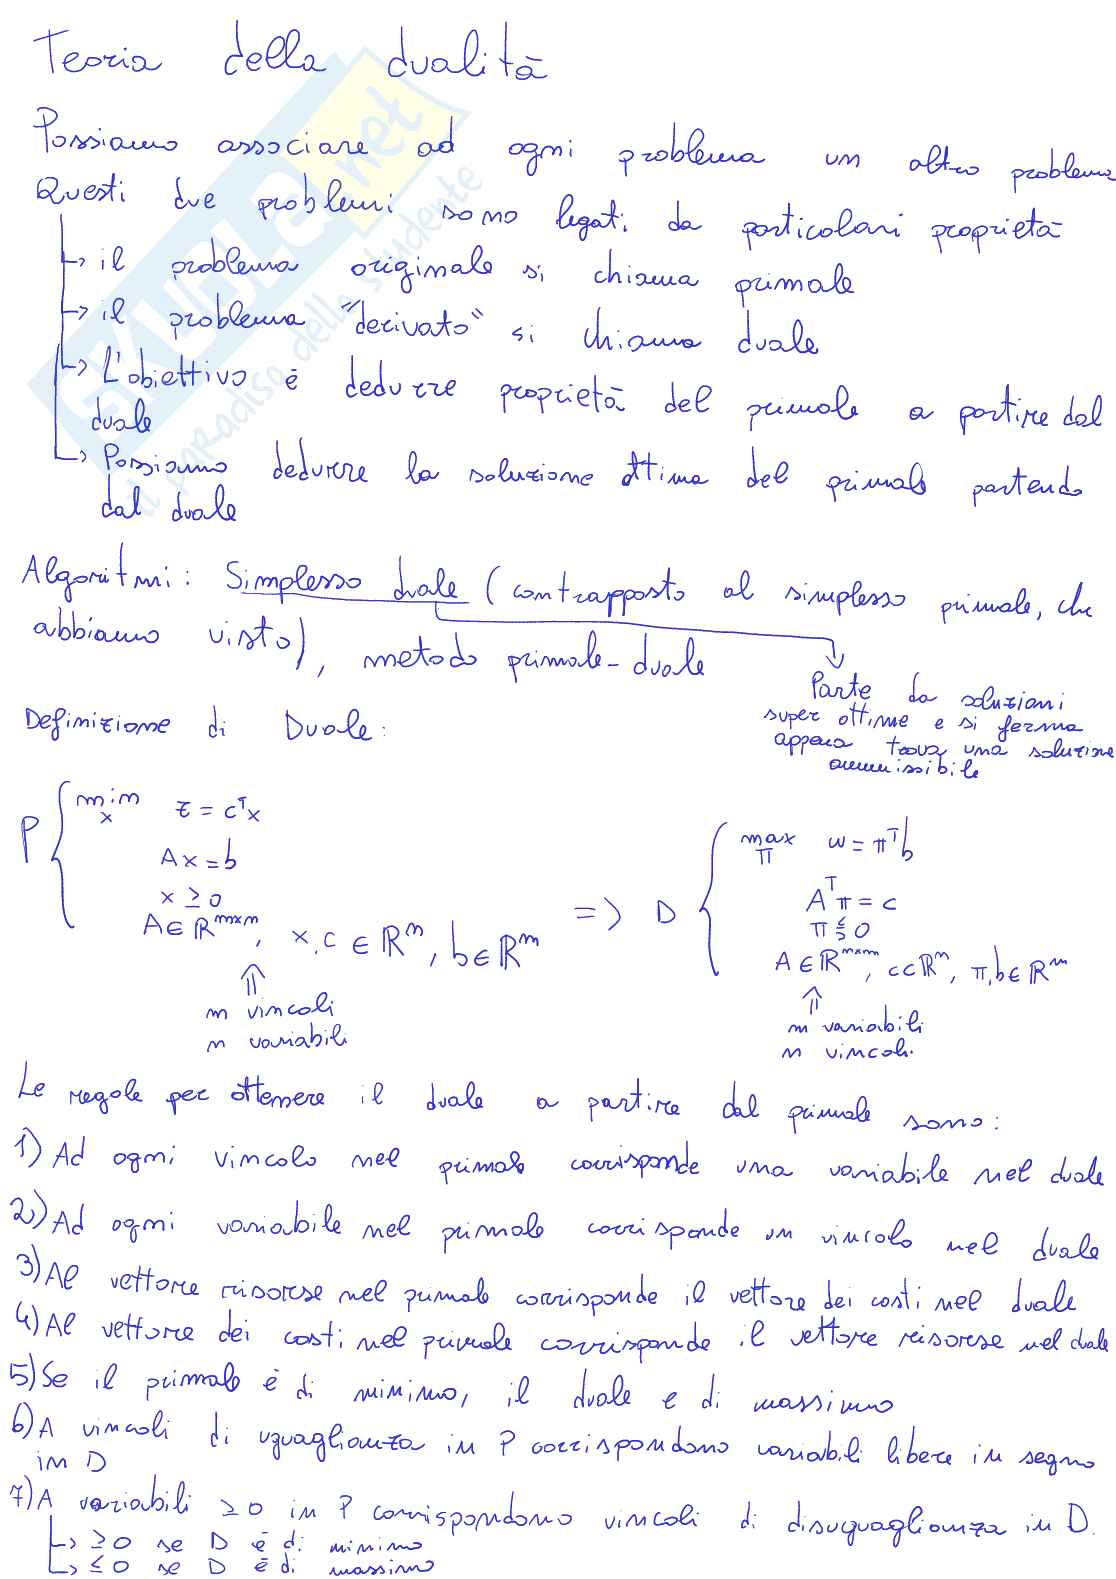 Teoria della dualità
Possiamo associare ad ogni problema un altro problema
Questi due problemi sono legati da particolari proprietà
↳ il problema originale si chiama primale
↳ il problema "derivato" si chiama duale
↳ L'obiettivo è dedurre proprietà del primale a partire dal
duale
↳ Possiamo dedurre la soluzione ottima del primale partendo
dal duale
Algoritmi: Simplesso duale (contrapposto al simplesso primale, che
abbiamo visto), metodo primale-duale
Parte da soluzioni
super ottime e si ferma
appena trova una soluzione
ammissibile
Definizione di Duale:
P { min x z = cᵀx
Ax = b
x ≥ 0
A ∈ ℝᵐˣⁿ, x,c ∈ ℝⁿ, b ∈ ℝᵐ
⇑
m vincoli
n variabili
=> D { max π w = πᵀb
Aᵀπ = c
π ≶ 0
A ∈ ℝᵐˣⁿ, c ∈ ℝⁿ, π,b ∈ ℝᵐ
⇑
m variabili
n vincoli
Le regole per ottenere il duale a partire dal primale sono:
1) Ad ogni vincolo nel primale corrisponde una variabile nel duale
2) Ad ogni variabile nel primale corrisponde un vincolo nel duale
3) Al vettore risorse nel primale corrisponde il vettore dei costi nel duale
4) Al vettore dei costi nel primale corrisponde il vettore risorse nel duale
5) Se il primale è di minimo, il duale e di massimo
6) A vincoli di uguaglianza in P corrispondono variabili libere in segno
in D
7) A variabili ≥0 in P corrispondono vincoli di disuguaglianza in D.
↳ ≥0 se D è di minimo
↳ ≤0 se D è di massimo
SKUOLA.net
il paradiso dello studente